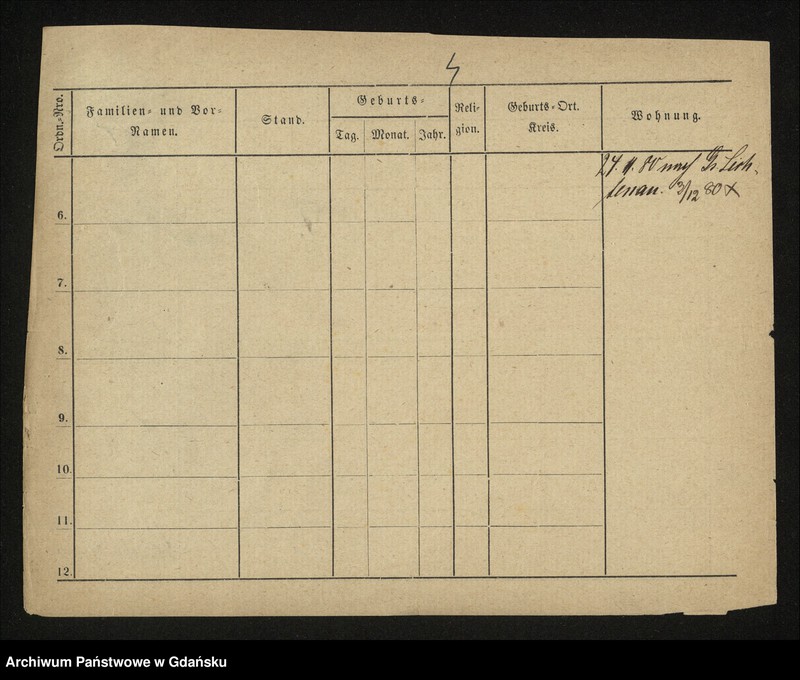 Ordn.-Nro.
Familien- und Vor-
Namen.
Stand.
Geburts-
Tag. Monat. Jahr.
Reli-
gion.
Geburts-Ort.
Kreis.
Wohnung.
24. 11. 80 nach Gr Lich-
tenau. 3/12 80
6.
7.
8.
9.
10.
11.
12.
Archiwum Państwowe w Gdańsku